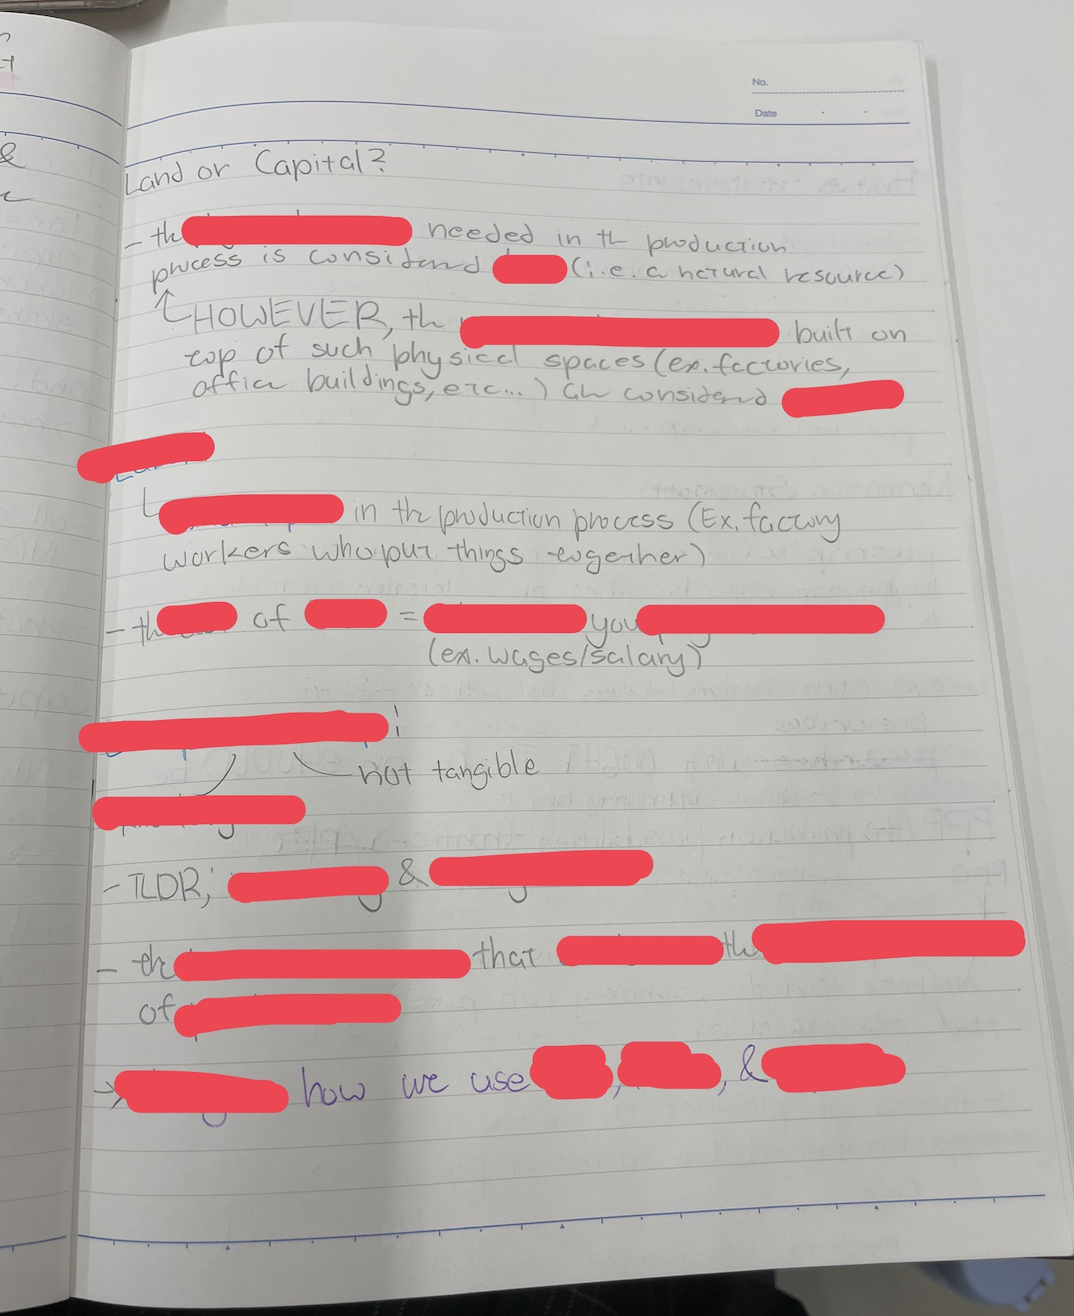 No.
Date
Land or Capital?
- the needed in the production
process is considered (i.e. a natural resource)
HOWEVER, the built on
top of such physical spaces (ex. factories,
office buildings, etc...) are considered
in the production process (Ex. factory
workers who put things together)
- the of = you
(ex. wages/salary)
:
not tangible
- TLDR; &
- the that the
of
→ how we use , , &